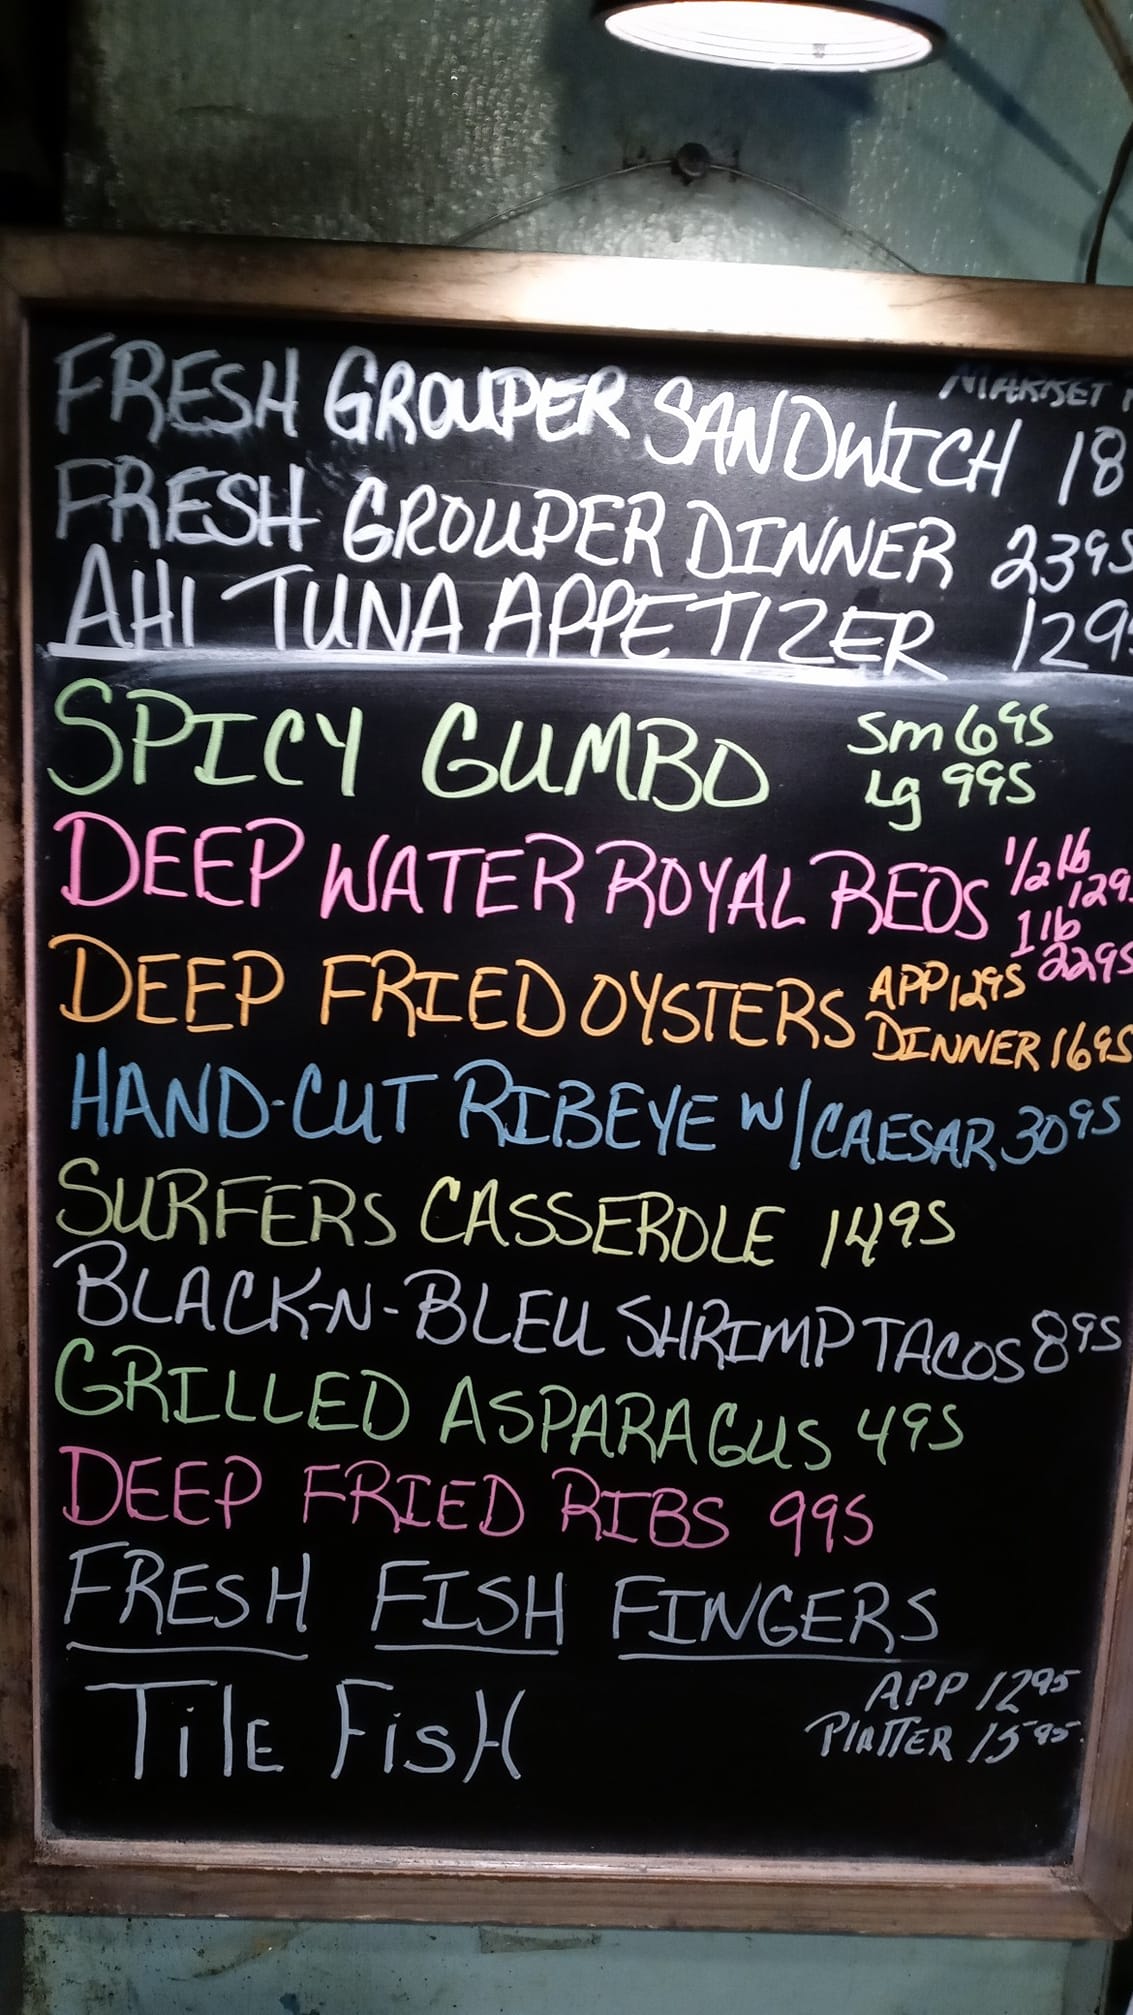 MARKET
FRESH GROUPER SANDWICH 18
FRESH GROUPER DINNER 2395
AHI TUNA APPETIZER 129
SPICY GUMBO Sm 695
Lg 995
DEEP WATER ROYAL REDS 1/2 lb 129
1 lb 2295
DEEP FRIED OYSTERS APP 1295
DINNER 1695
HAND-CUT RIBEYE W/CAESAR 3095
SURFERS CASSEROLE 1495
BLACK-N-BLEU SHRIMP TACOS 895
GRILLED ASPARAGUS 495
DEEP FRIED RIBS 995
FRESH FISH FINGERS
TilE FisH APP 1295
PlATTER 1595